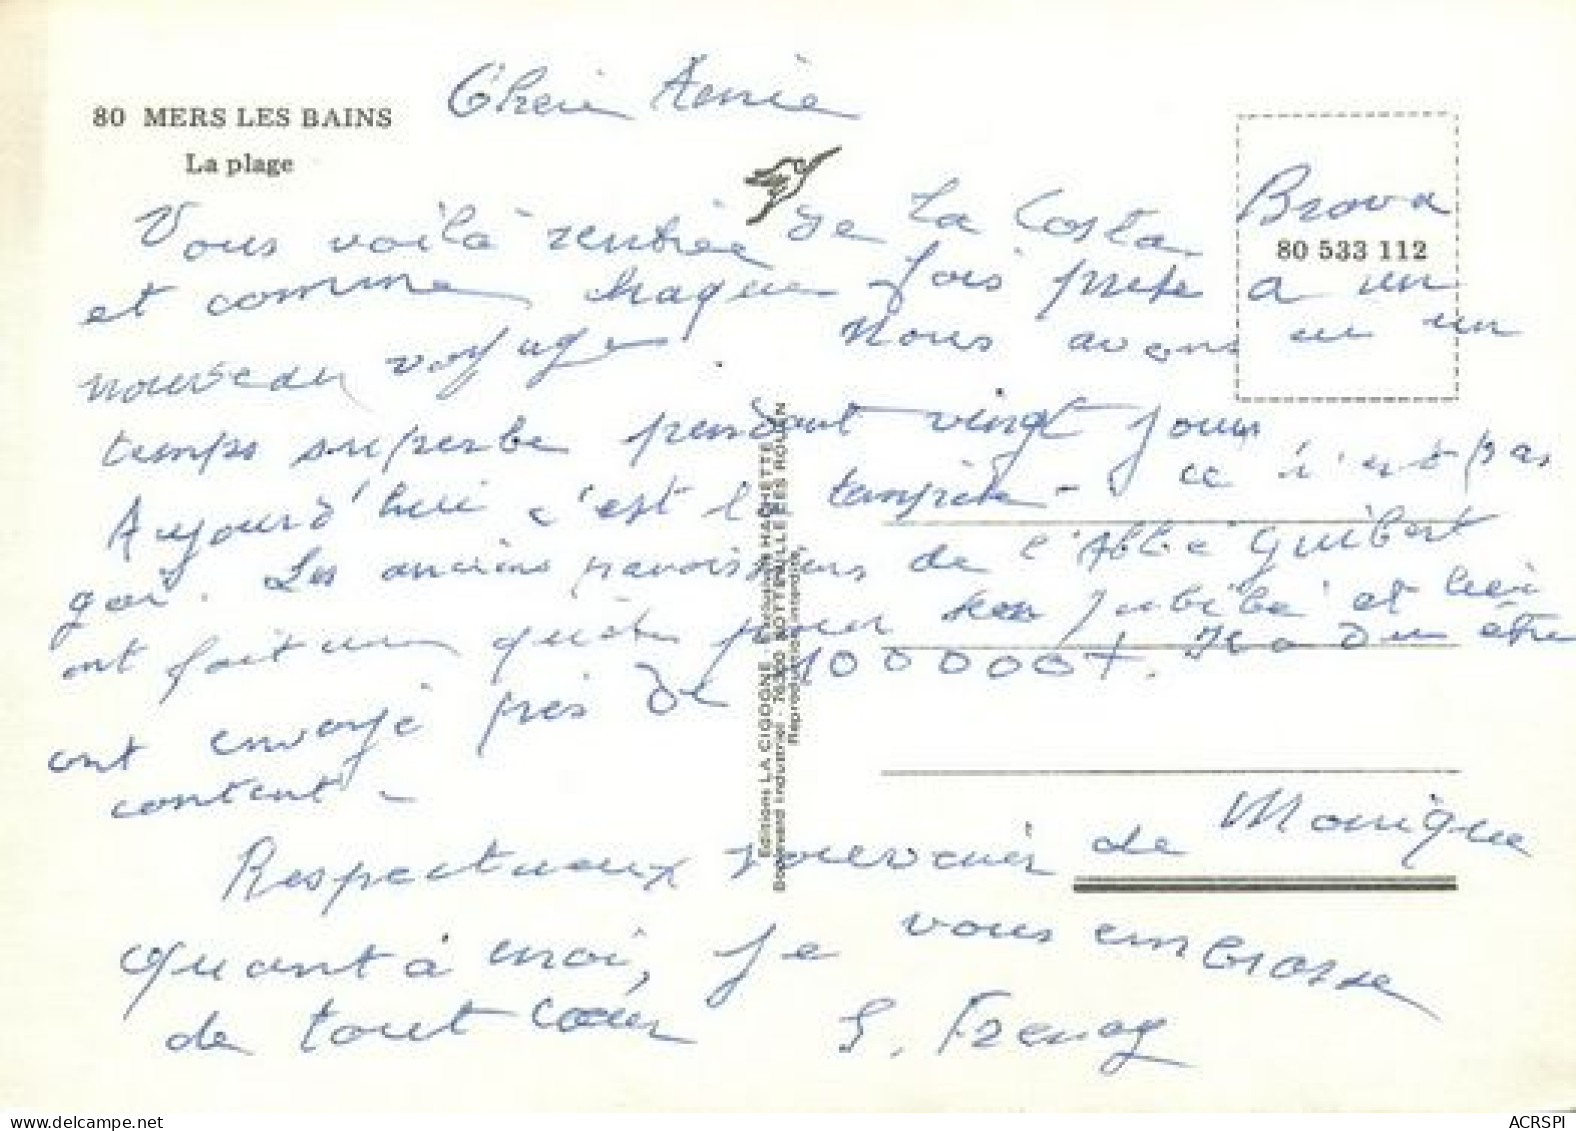 80 MERS LES BAINS
La plage
Chère Amie
Vous voilà rentrée de La Costa Brava
80 533 112
et comme chaque fois prete a un
nouveau voyage. Nous avons eu un
temps superbe pendant vingt jours
Aujourd'hui c'est la tempête - ce n'est pas
gai. Les anciens paroissiens de l'Abbé Guibert
ont fait une quête pour son Jubilé et lui
ont envoyé près de 100000 F. Il a du être
content -
Respectueux souvenir de Monique
Quant à moi, je vous embrasse
de tout coeur S.
Editions LA CIGOGNE, Exclusivité HACHETTE
Boulevard Industriel - 76300 SOTTEVILLE LES ROUEN
Reproduction interdite,
ACRSPI